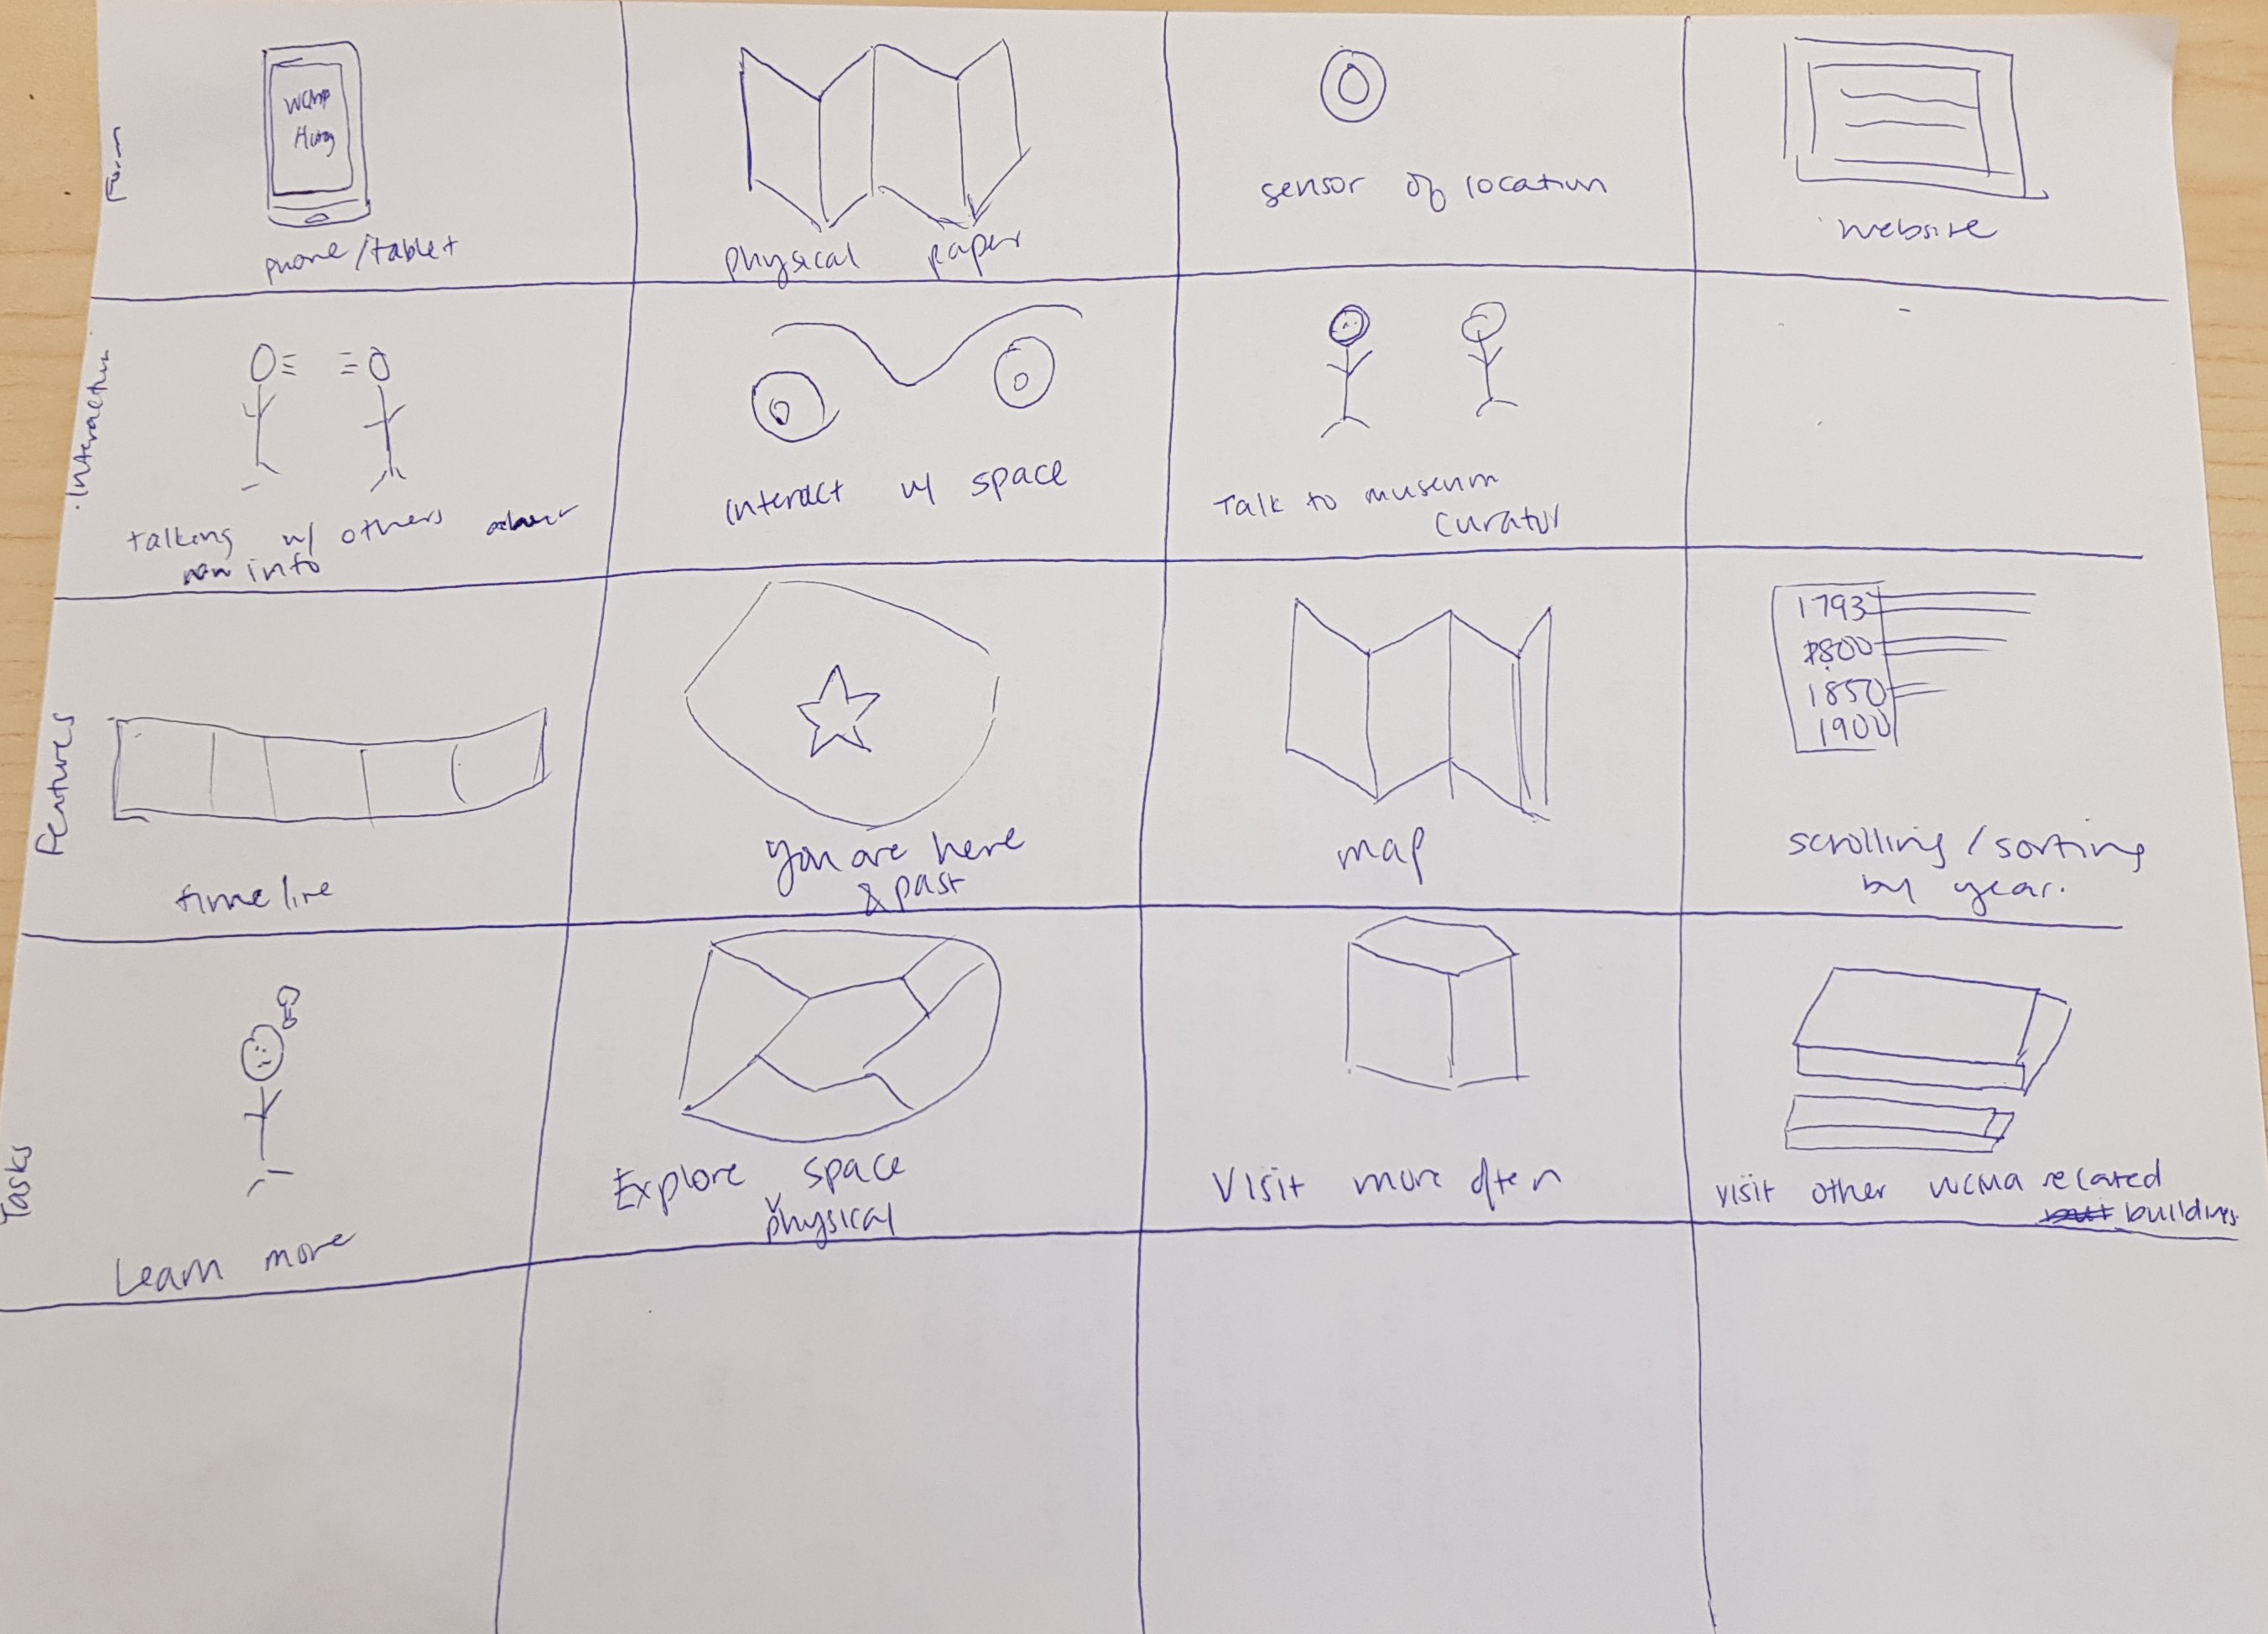 Form
phone/tablet
physical paper
sensor of location
website
Interaction
talking w/ others about
info
interact w/ space
Talk to museum
curator
Features
timeline
you are here
& past
map
1793
1800
1850
1900
scrolling/sorting
by year.
Tasks
Learn more
Explore space
physical
Visit more often
visit other WCMA related
buildings